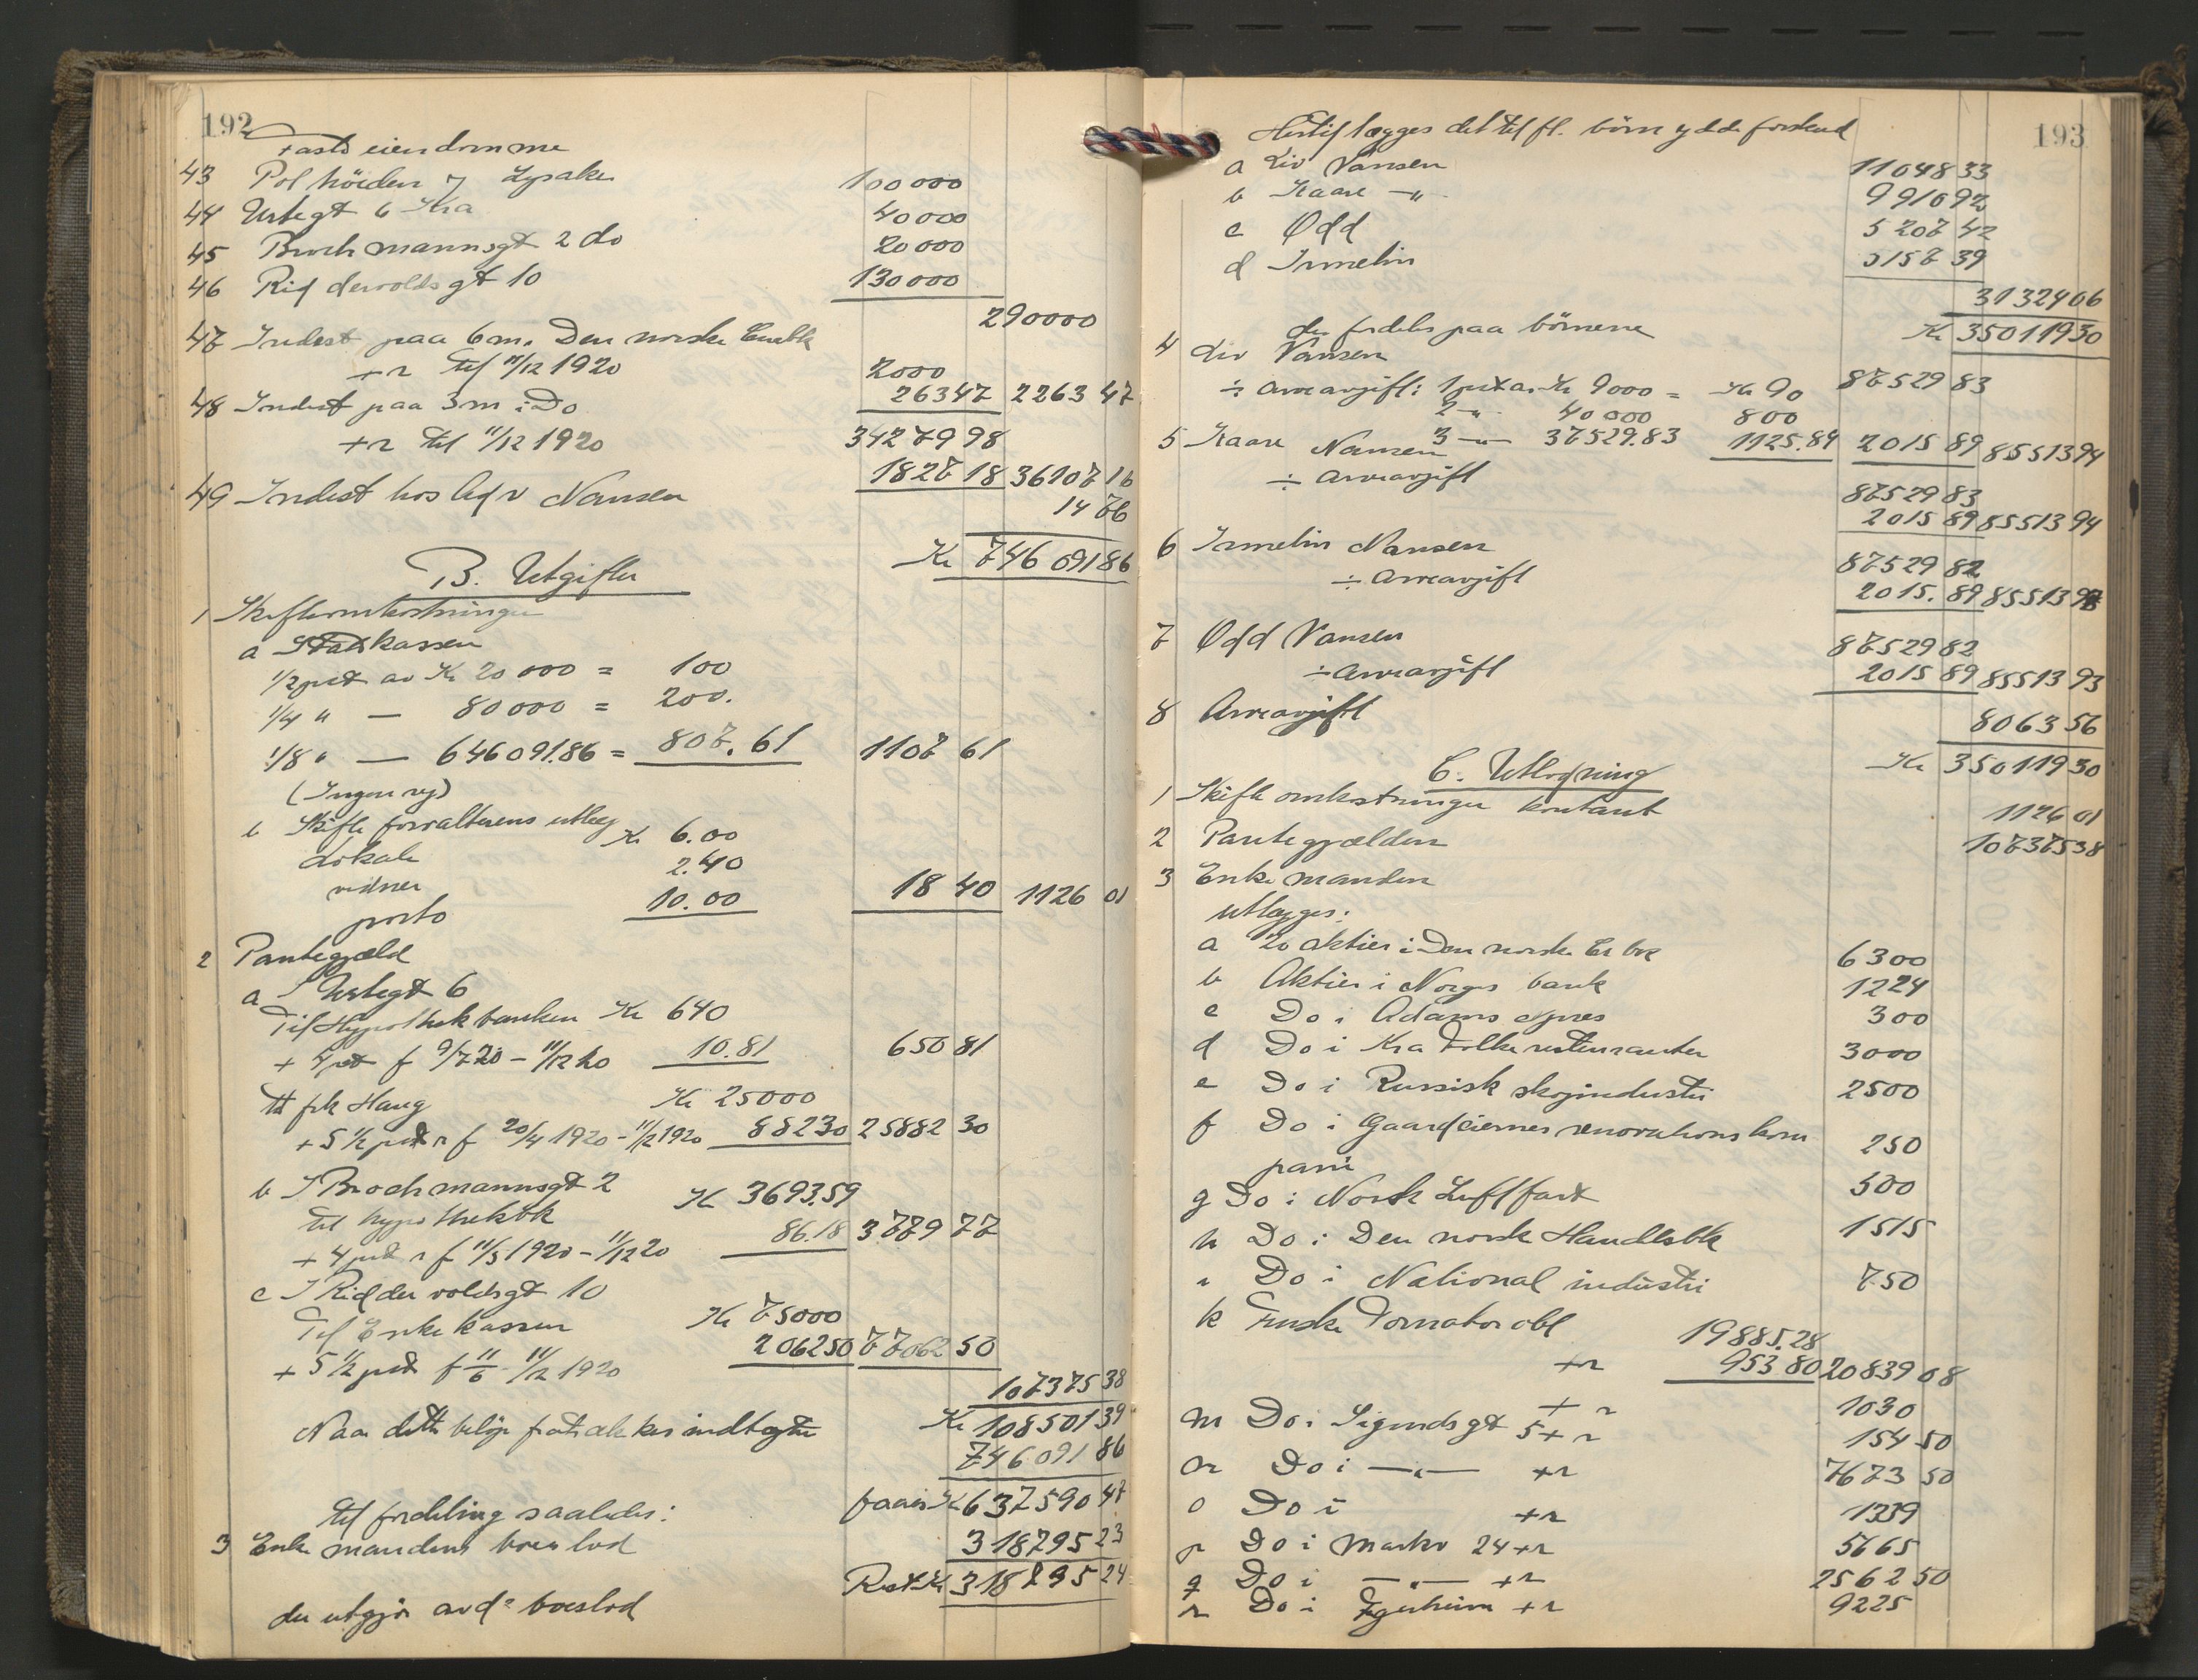 192
Faste eiendomme
43 Polhöiden, Lysaker 100000
44 Ustegt 6 Kra 40000
45 Brochmannsgt 2 do 20000
46 Riddervoldsgt 10 130000
290000
47 Indest paa 6m. Den norske Crbk 2000
+ r til 11/12 1920 26347 2263 47
48 Indest paa 3m i Do 34279 98
+ r til 11/12 1920 1827 18 36107 16
49 Indest hos Nansen 14 76
Kr 746 091 86
B. Utgifter
1 Skifteomkostninger
a Statskassen
1/2 pct av Kr 20 000 = 100
1/4 " — 80000 = 200.
1/8 " — 646091.86 = 807.61 1107 61
(Ingen rg)
b Skifteforvalterens utlæg
Lokale Kr 6.00
vidner 2.40
porto 10.00 18 40 1126 01
2 Pantegjæld
a I Ustegt 6
Til Hypothekbanken Kr 640
+ 4 pct f 9/7 20 – 11/12 20 10.81 650 81
til frk Haug Kr 25000
+ 5 1/2 pct r f 20/4 1920 – 11/12 1920 88230 25882 30
b I Brochmannsgt 2
til hypothekbk Kr 3693.59
+ 4 pct r f 11/5 1920 – 11/12 20 86.18 3779 77
c I Riddervoldsgt 10
Til Enkekassen Kr 75000
+ 5 1/2 pct f 11/6 – 11/12 1920 206250 77062 50
107375 38
Kr 108501 39
Naar dette beløp fratrækkes indtægten 746091 86
faaes Kr 637590 47
til fordeling saaledes:
3 Enkemandens boeslod 318795 23
Rest Kr 318795 24
der utgjör avdes boeslod
193
Hertil lægges det til fl. börn ydede forskud
a Liv Nansen 11048 33
b Kaare —"— 9910 92
c Odd 5207 42
d Irmelin 5157 39
31324 06
Kr 350119 30
der fordeles paa börnene
4 Liv Nansen 87529 83
÷ arveavgift: 1 pct av Kr 9000 = Kr 90
2 —"— 40000 800
3 —"— 37529.83 1125.89 2015 89 85513 94
5 Kaare Nansen 87529 83
÷ arveavgift 2015 89 85513 94
6 Irmelin Nansen 87529 82
÷ arveavgift 2015.89 85513 93
7 Odd Nansen 87529 82
÷ arveavgift 2015 89 85513 93
8 Arveavgift 8063 56
Kr 350119 30
C. Utlodning
1 Skifteomkostninger kontant 1126 01
2 Pantegjælden 107375 38
3 Enkemanden
utlægges:
a 20 aktier i Den norske Cr bk 6300
b Aktier i Norges bank 1224
c Do i Adams expres 300
d Do i Kra Folkerestauranter 3000
e Do i Russisk skogindustri 2500
f Do i Gaardeiernes renovationskom
pani 250
g Do i Norsk Luftfart 500
h Do i Den norske Handelsbk 1515
i Do i National industri 750
k Finske Tornator obl 19885.28
+ r 953 80 20839 08
+ r 1030
m Do i Sigurdsgt 5 + r 154 50
n Do i —"— + r 7673 50
o Do i + r 1339
p Do i Markv 24 + r 5665
q Do i —"— + r 2562 50
r Do i Egerheim + r 9225